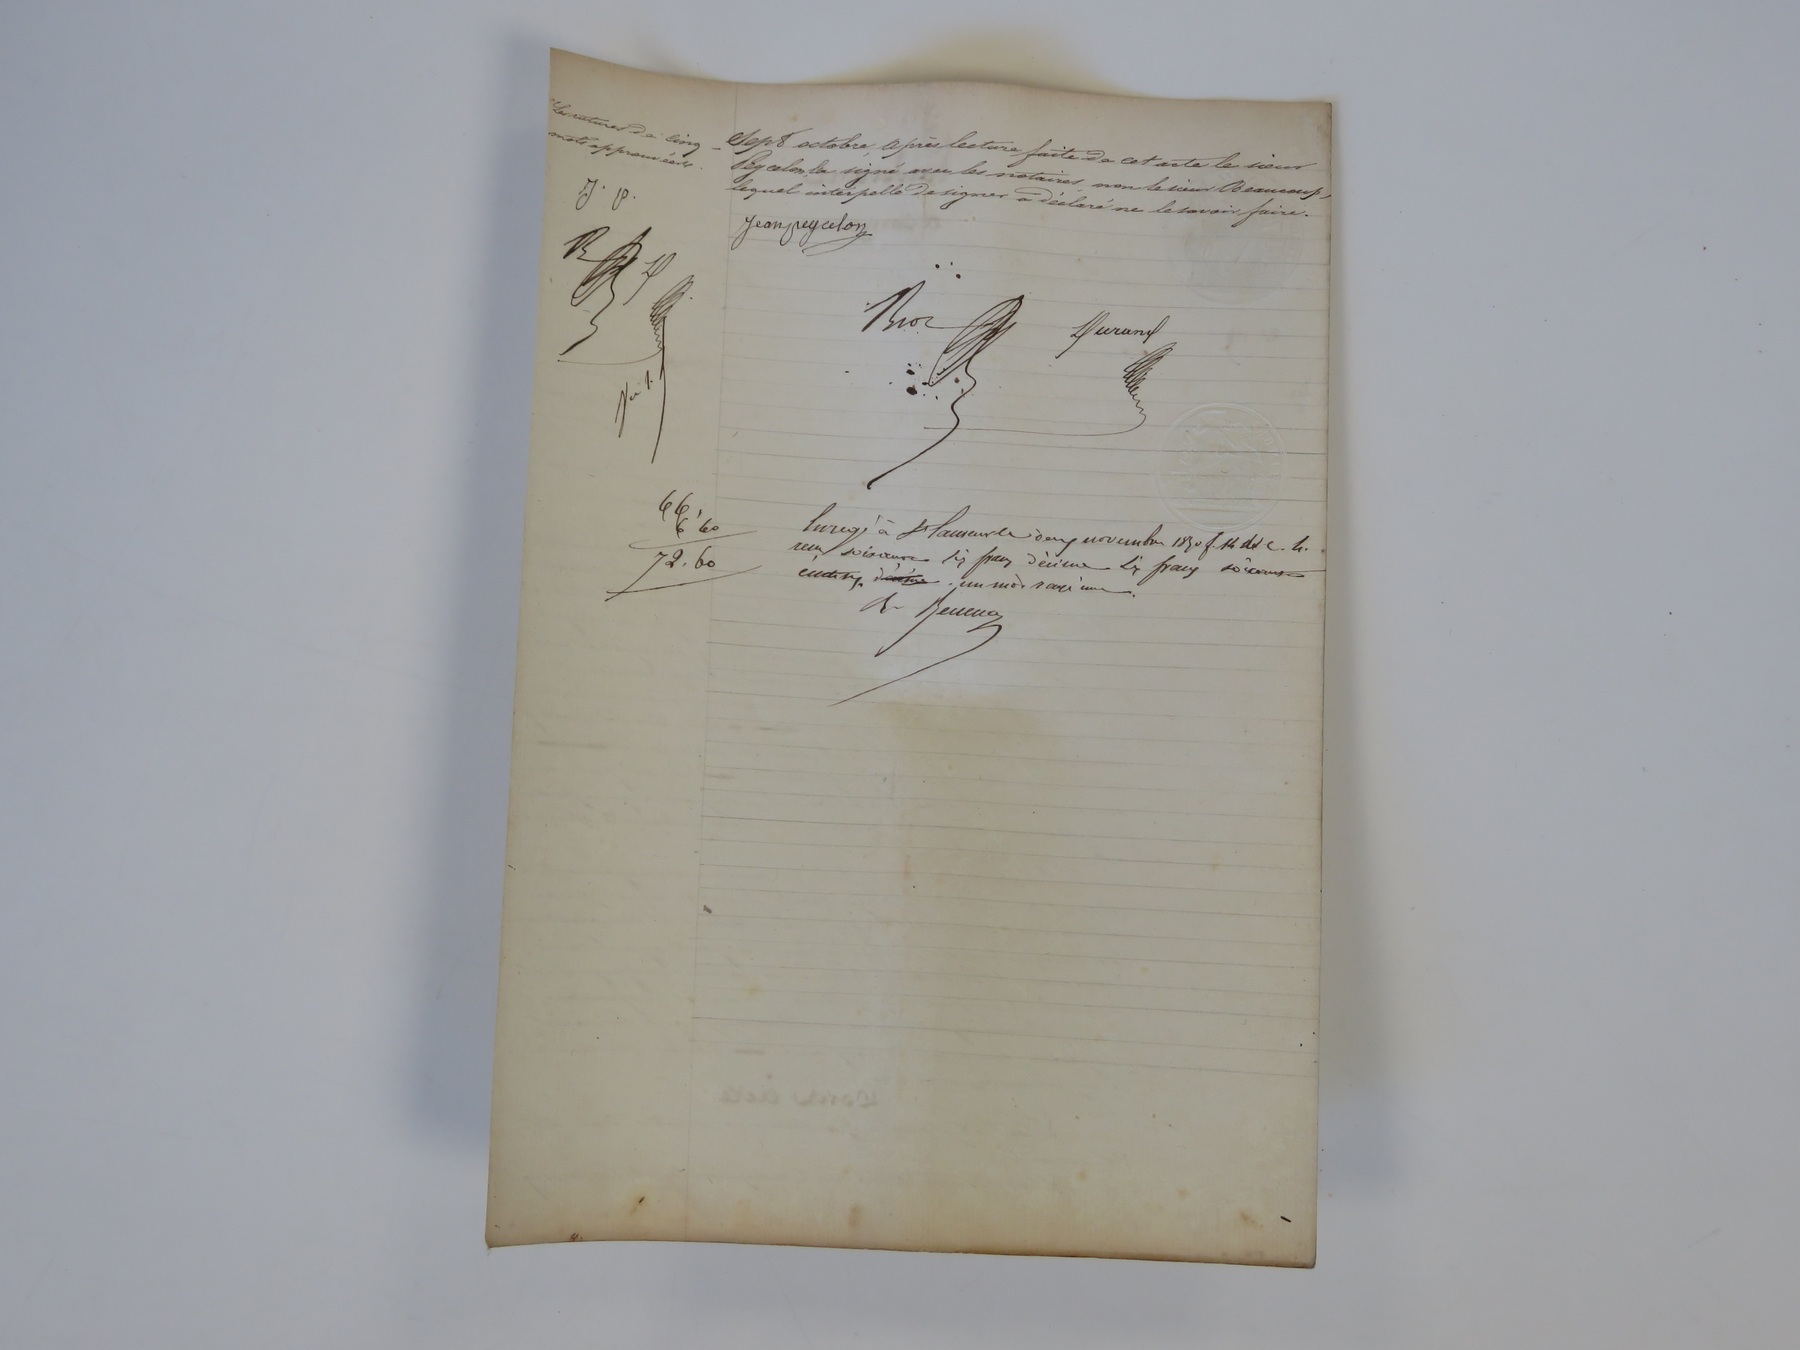 Les ratures de cinq
mots approuvées.
J. p.
R D
Sept octobre, après lecture faite de cet acte le sieur
Peycelon l'a signé avec les notaires, non le sieur Beaucoup,
lequel interpellé de signer a déclaré ne le savoir faire.
Jean peycelon
Durand
66,
6,60
72.60
novembre f.
reçu soixante six francs décime six francs soixante
centimes un mot rayé